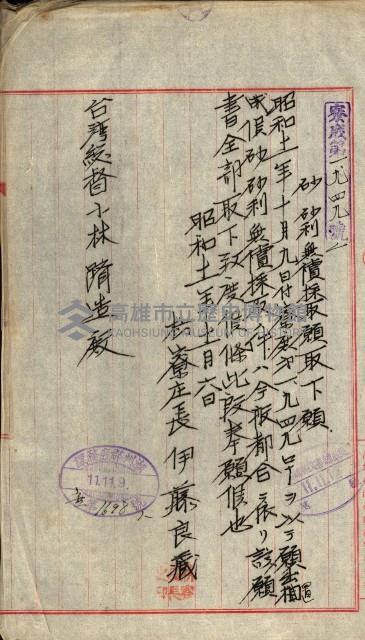 寮庶第一九四九號ノ一
砂、砂利無償採取願取下願
昭和十一年十月九日付寮庶第一九四九号ヲ以テ願出相置
候砂、砂利無償採取ノ件ハ今般都合ニ依リ該願
書全部取下致度候條此段奉願候也
昭和十一年十一月六日
枋寮庄長 伊藤良藏
台湾総督小林躋造殿
高雄市立歷史博物館
KAOHSIUNG MUSEUM OF HISTORY
11.11.9.
1698